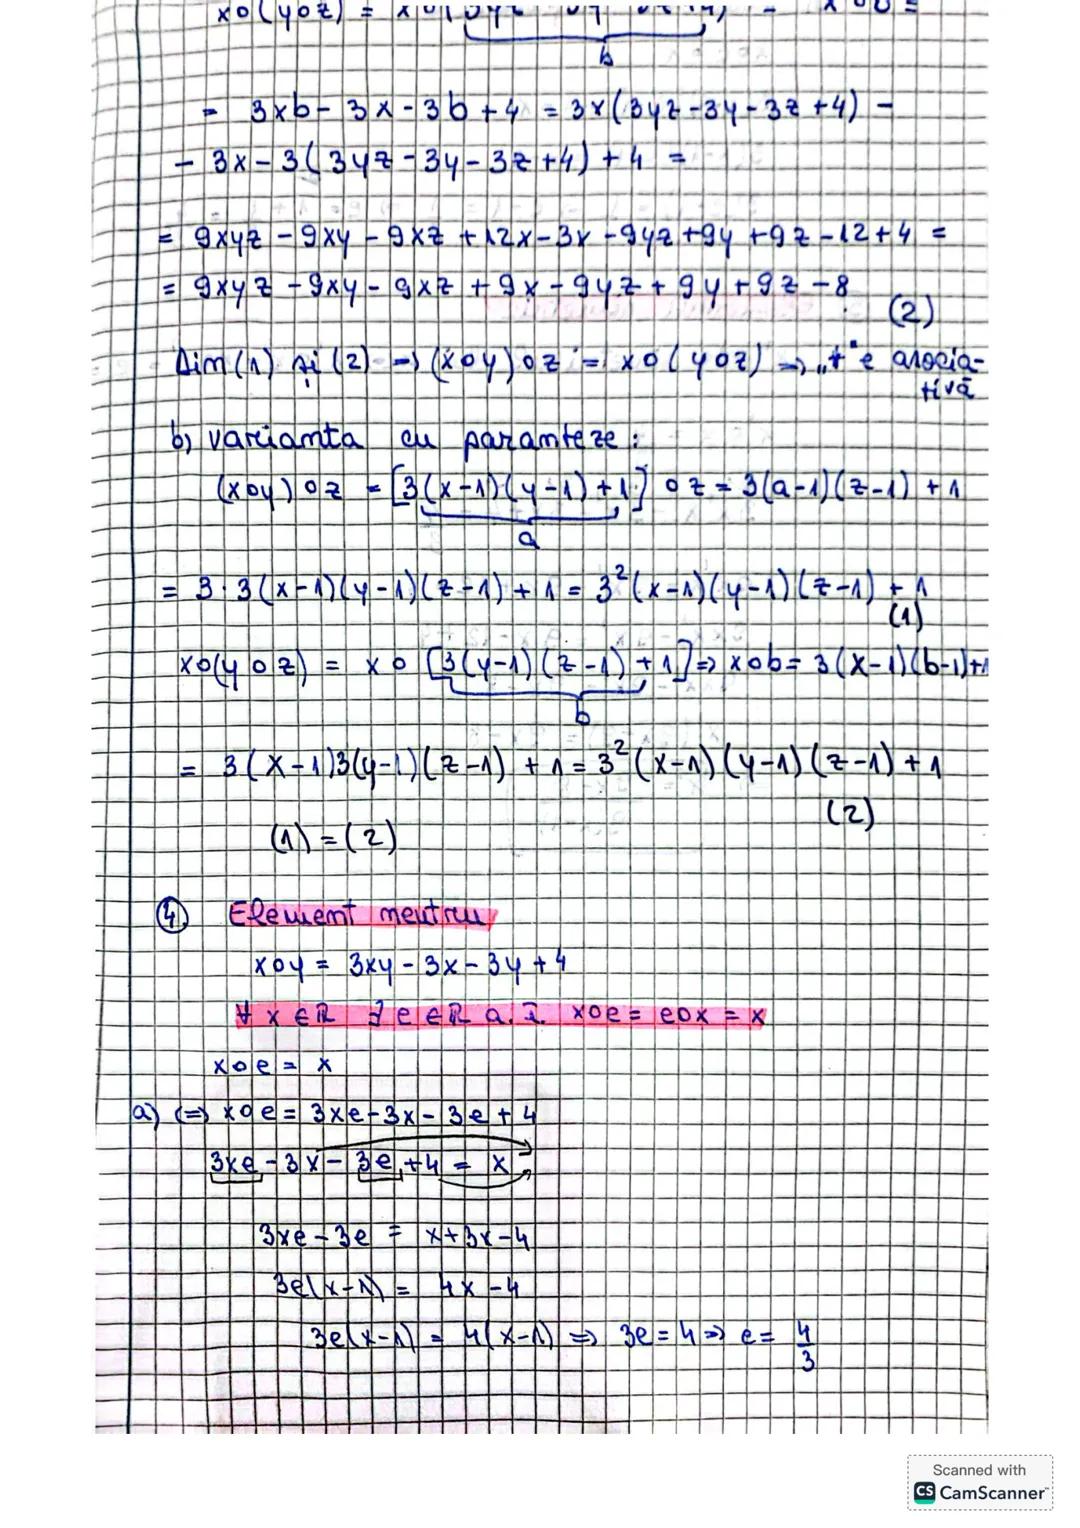 xo(yoz) =
b
= 3xb - 3x - 3b + 4 = 3x(3yz - 3y - 3z + 4) -
- 3x - 3(3yz - 3y - 3z + 4) + 4 =
= 9xyz - 9xy - 9xz + 12x - 3x - 9yz + 9y + 9z - 12 + 4 =
= 9xyz - 9xy - 9xz + 9x - 9yz + 9y + 9z - 8
(2)
Din (1) și (2) => (xoy)oz = xo(yoz) => „+" e asocia-
tivă
b) varianta cu paranteze:
(xoy)oz = [3(x-1)(y-1)+1] oz = 3(a-1)(z-1) + 1
a
= 3·3(x-1)(y-1)(z-1) + 1 = 3²(x-1)(y-1)(z-1) + 1
(1)
xo(yoz) = xo [3(y-1)(z-1)+1] => xob = 3(x-1)(b-1)+1
b
= 3(x-1)3(y-1)(z-1) + 1 = 3²(x-1)(y-1)(z-1) + 1
(2)
(1) = (2)
4. Element neutru
xoy = 3xy - 3x - 3y + 4
∀ x ∈ R ∃ e ∈ R a.î. xoe = eox = x
xoe = x
a) (=) xoe = 3xe - 3x - 3e + 4
3xe - 3x - 3e + 4 = x
3xe - 3e = x + 3x - 4
3e(x-1) = 4x - 4
3e(x-1) = 4(x-1) => 3e = 4 => e = 4/3
Scanned with
CS CamScanner